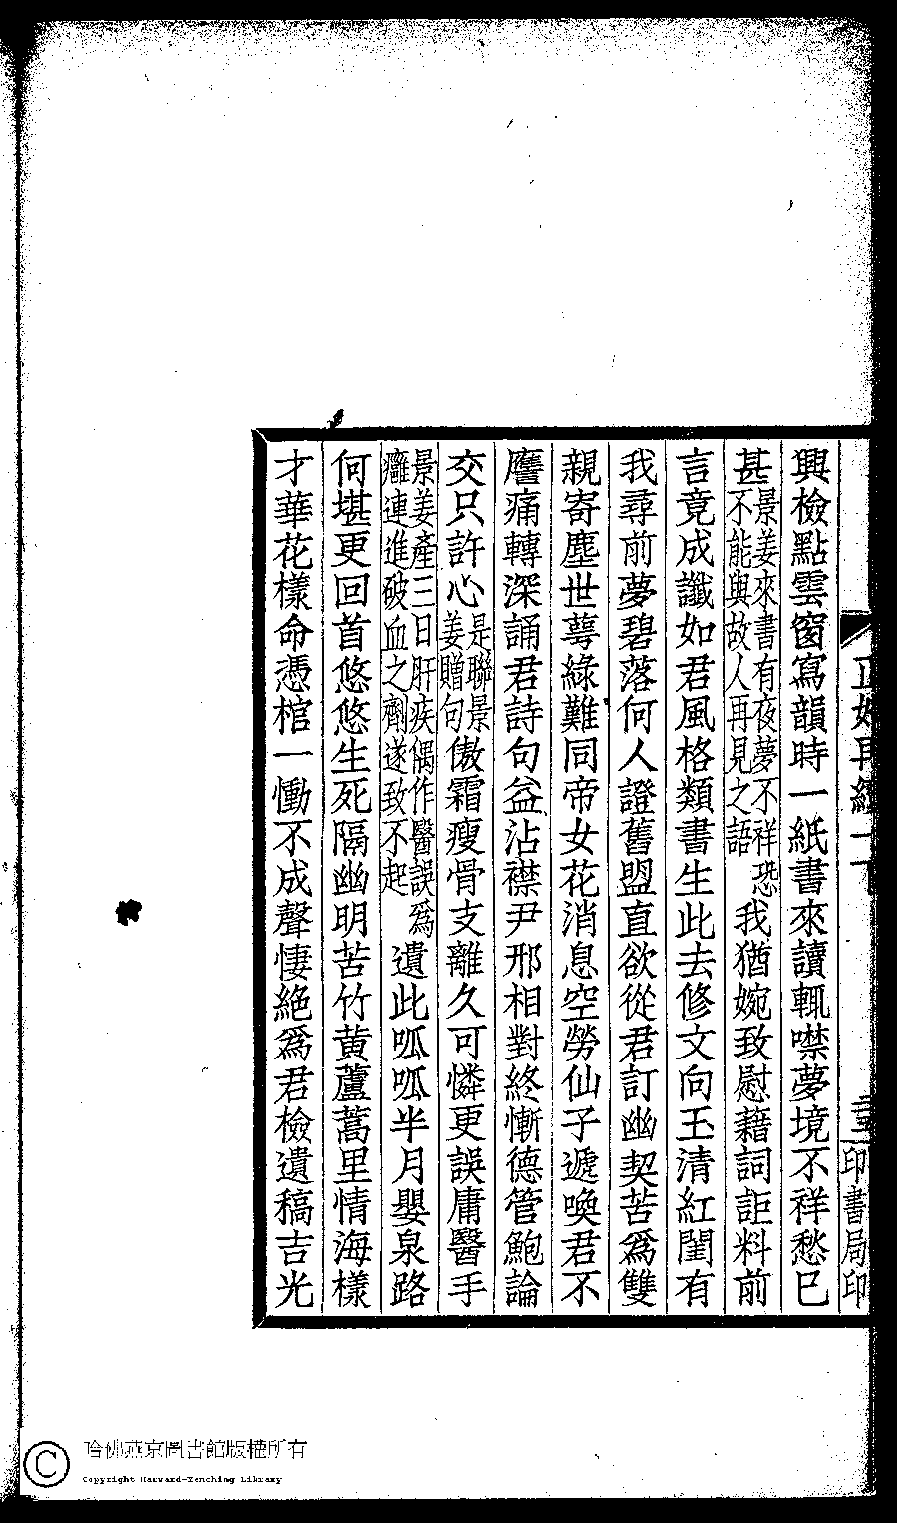 興檢點雲窗寫韻時一紙書來讀輒噤夢境不祥愁已
甚景姜來書有夜夢不祥恐不能與故人再見之語我猶婉致慰藉詞詎料前
言竟成讖如君風格類書生此去修文向玉清紅閨有
我尋前夢碧落何人證舊盟直欲從君訂幽契苦爲雙
親寄塵世萼綠難同帝女花消息空勞仙子遞喚君不
譍痛轉深誦君詩句益沾襟尹邢相對終慚德管鮑論
交只許心是聯景姜贈句傲霜瘦骨支離久可憐更誤庸醫手
景姜產三日肝疾偶作醫誤爲癰連進破血之劑遂致不起遺此呱呱半月嬰泉路
何堪更回首悠悠生死隔幽明苦竹黄蘆蒿里情海樣
才華花樣命憑棺一慟不成聲悽絶爲君檢遺稿吉光
印書局印
哈佛燕京圖書館版權所有
Copyright Harvard-Yenching Library